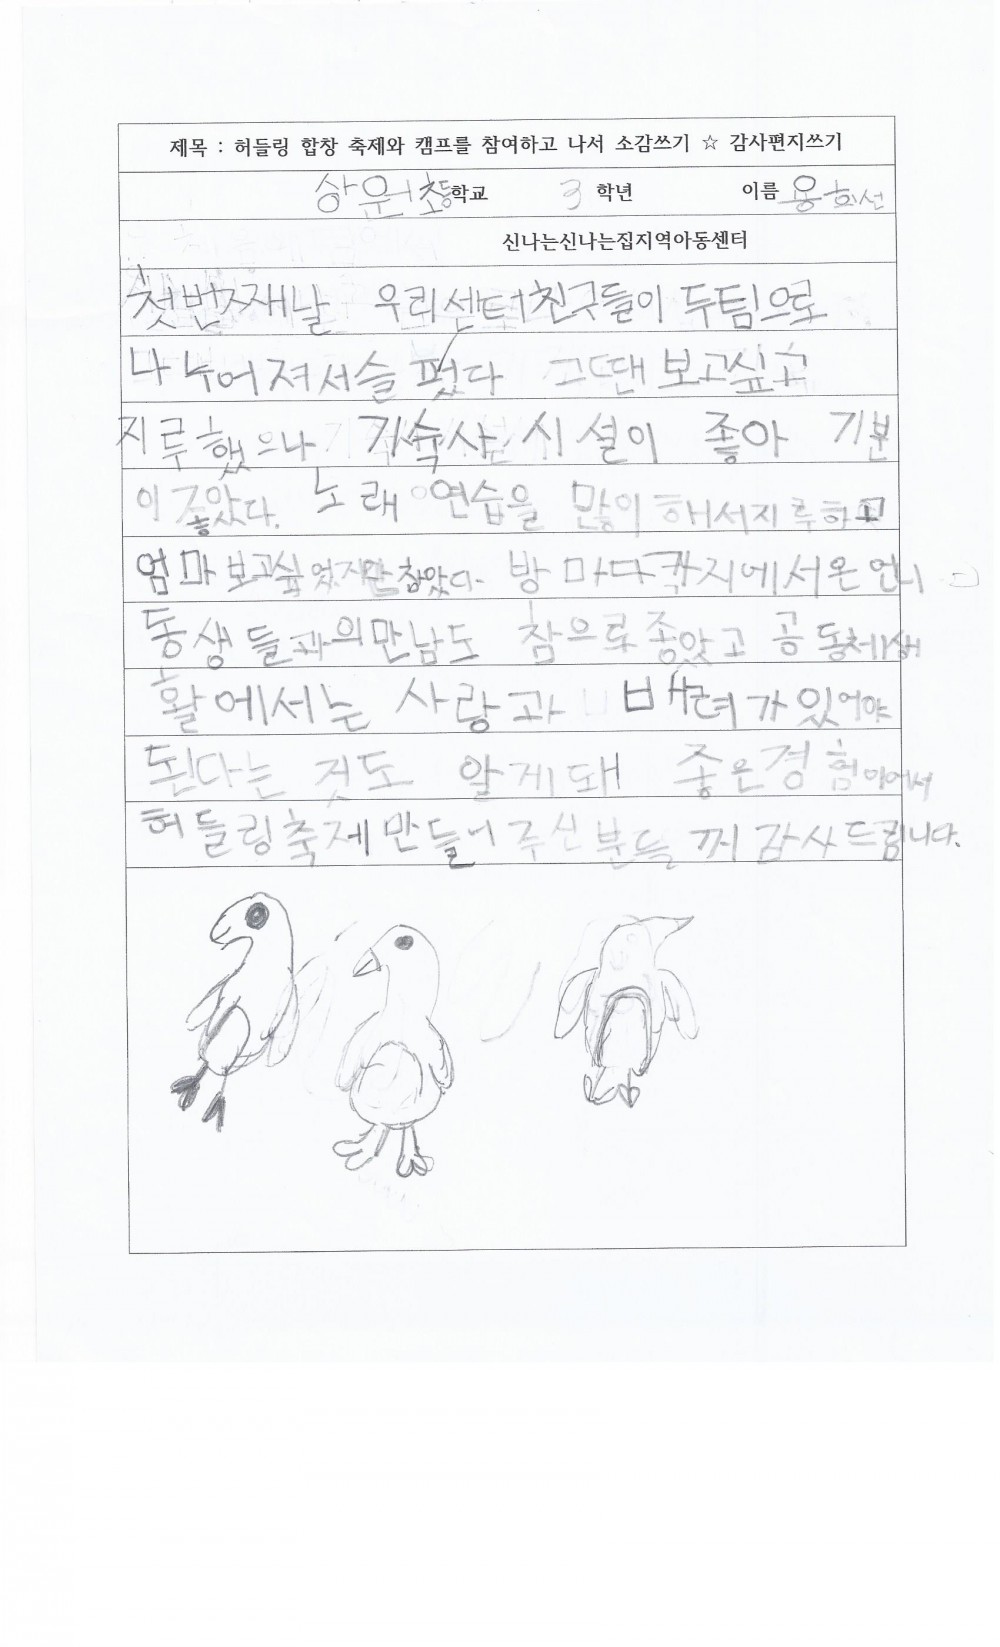 제목 : 허들링 합창 축제와 캠프를 참여하고 나서 소감쓰기 ☆ 감사편지쓰기
상원초등학교 3 학년 이름 용희선
신나는신나는집지역아동센터
첫번째날 우리센터친구들이 두팀으로
나누어져서슬펐다 그땐보고싶고
지루했으나 기숙사 시설이 좋아 기분
이 좋았다. 노래 연습을 많이 해서지루하고
엄마보고싶었지만참았다. 방마다각지에서온언니
동생들과의만남도 참으로좋았고 공동체생
활에서는 사랑과 배려가있어야
된다는 것도 알게돼 좋은경험이어서
허들링축제만들어주신분들께감사드립니다.